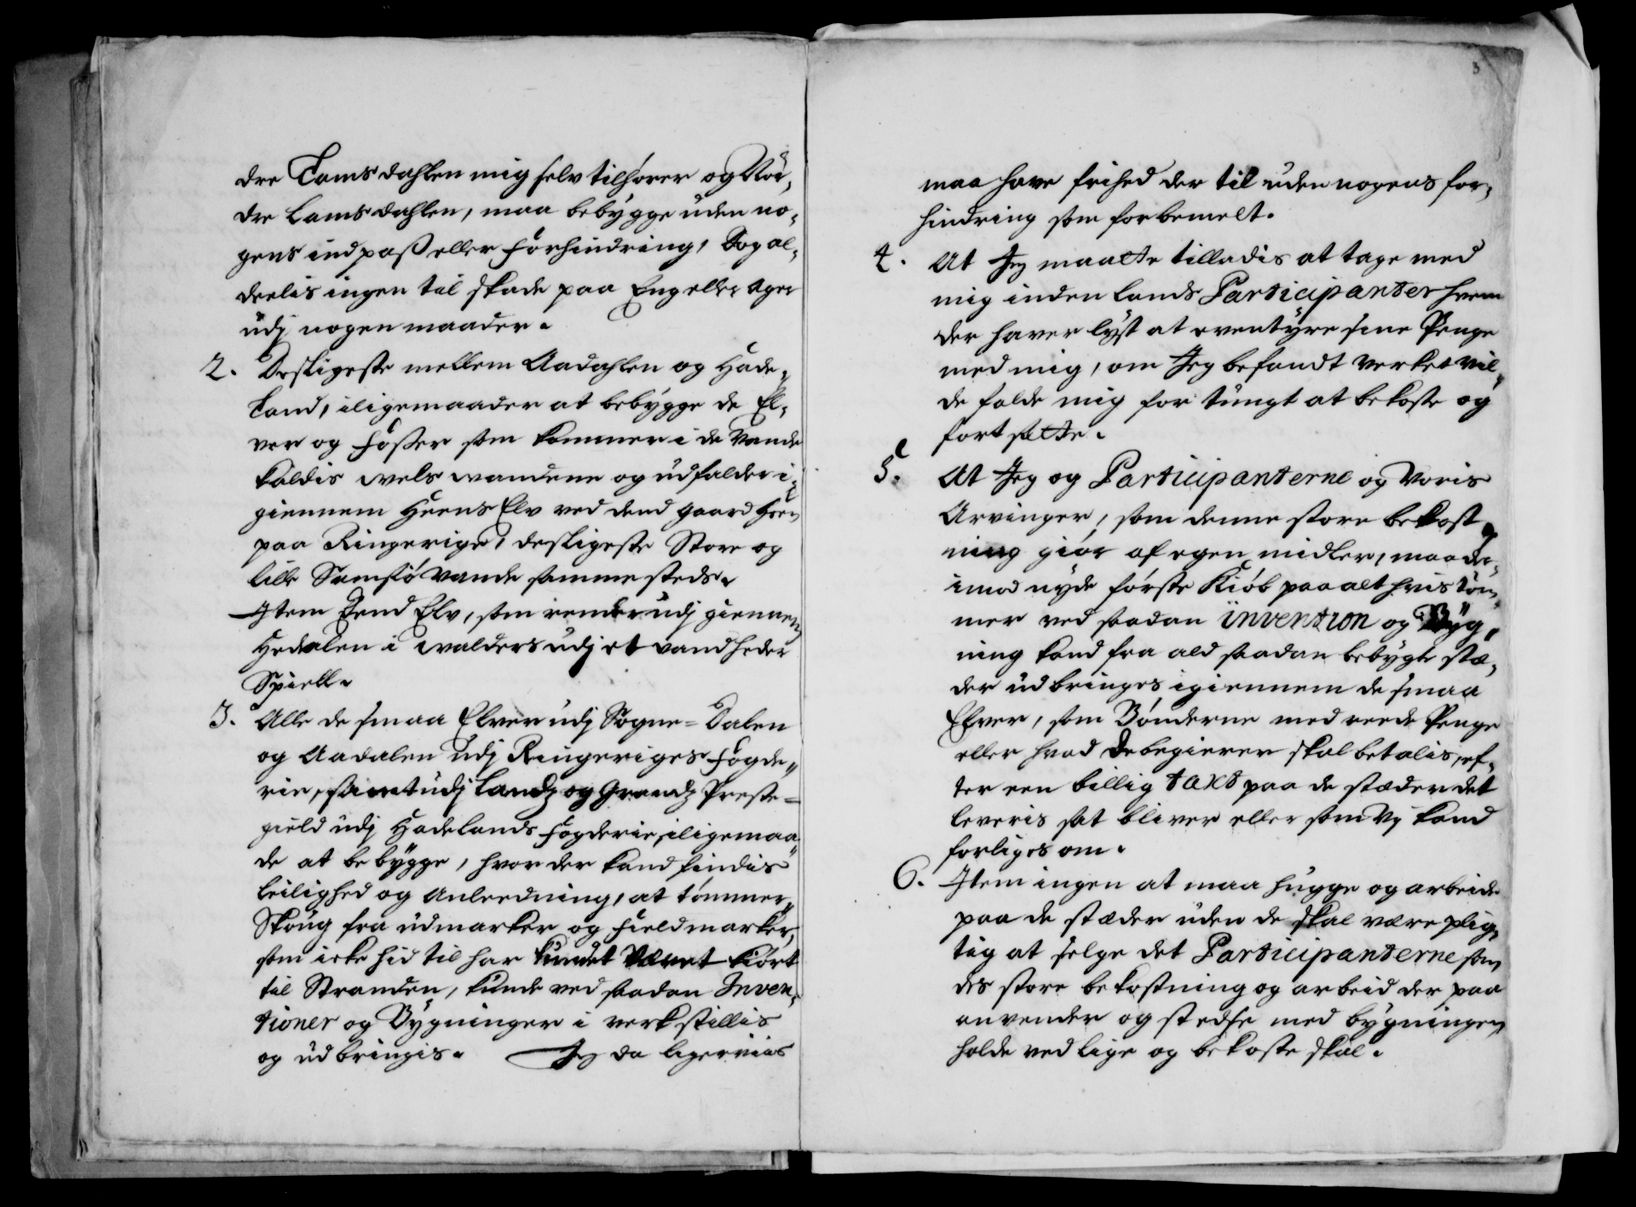 dre Lamsdahlen mig selv tilhører og Nør-
dre Lamsdahlen, maa bebygge uden no-
gens indpass eller Forhindring, Dog al-
deelis ingen til skade paa Eng eller Ager
udj nogen maader.
2. Desligeste mellem Aadahlen og Hade-
Land, iligemaader at bebygge de El-
ver og Fosser som kommer i de Vande
kaldis Wels wandene og udfalder i-
giennem Heens Elv ved dend gaard Heen
paa Ringerige, desligeste Store og
lille Samsiø Vande sammesteds.
Item Dend Elv, som render udj giennem
Hedalen i Walders udj et vand heder
Spirell.
3. Alle de smaa Elver udj Sogne-Dalen
og Aadalen udj Ringeriges Fogde-
rie, samt udj Landz og Grandz Preste-
gield udj Hadelands Fogderie, iligemaa-
de at bebygge, hvor der kand findis
leilighed og Anleedning, at tømmer
Skoug fra udmarker og Fieldmarker,
som icke hid til har kundet været kiørt
til Stranden, kunde ved saadan Inven-
tioner og Bygninger i verkstillis
og udbringis. Jeg da ligerviis
3
maa have frihed der til uden nogens for-
hindring som forbemelt.
4. At Jeg maatte tilladis at tage med
mig inden lands Participanter hvem
der haver lyst at eventyre sine Penge
med mig, om Jeg befandt Verket vil-
de falde mig for tungt at bekoste og
fortsætte.
5. At Jeg og Participanterne og Voris
Arvinger, som denne store bekost-
ning giør af egen midler, maa der-
imod nyde første Kiøb paa alt hvis tøm-
mer ved saadan invention og Byg-
ning kand fra ald saadan bebygte stæ-
der udbringes igiennem de smaa
Elver, som Bønderne med reede Penge
eller hvad de begierer skal betalis, ef-
ter een billig taxt paa de stæder det
leveris sat bliver eller som Vj kand
forliges om.
6. Item ingen at maa hugge og arbeide
paa de stæder uden de skal være plig-
tig at selge det Participanterne som
des store bekostning og arbeid der paa
anvender og stedse med bygningen
holde ved lige og bekoste skal.